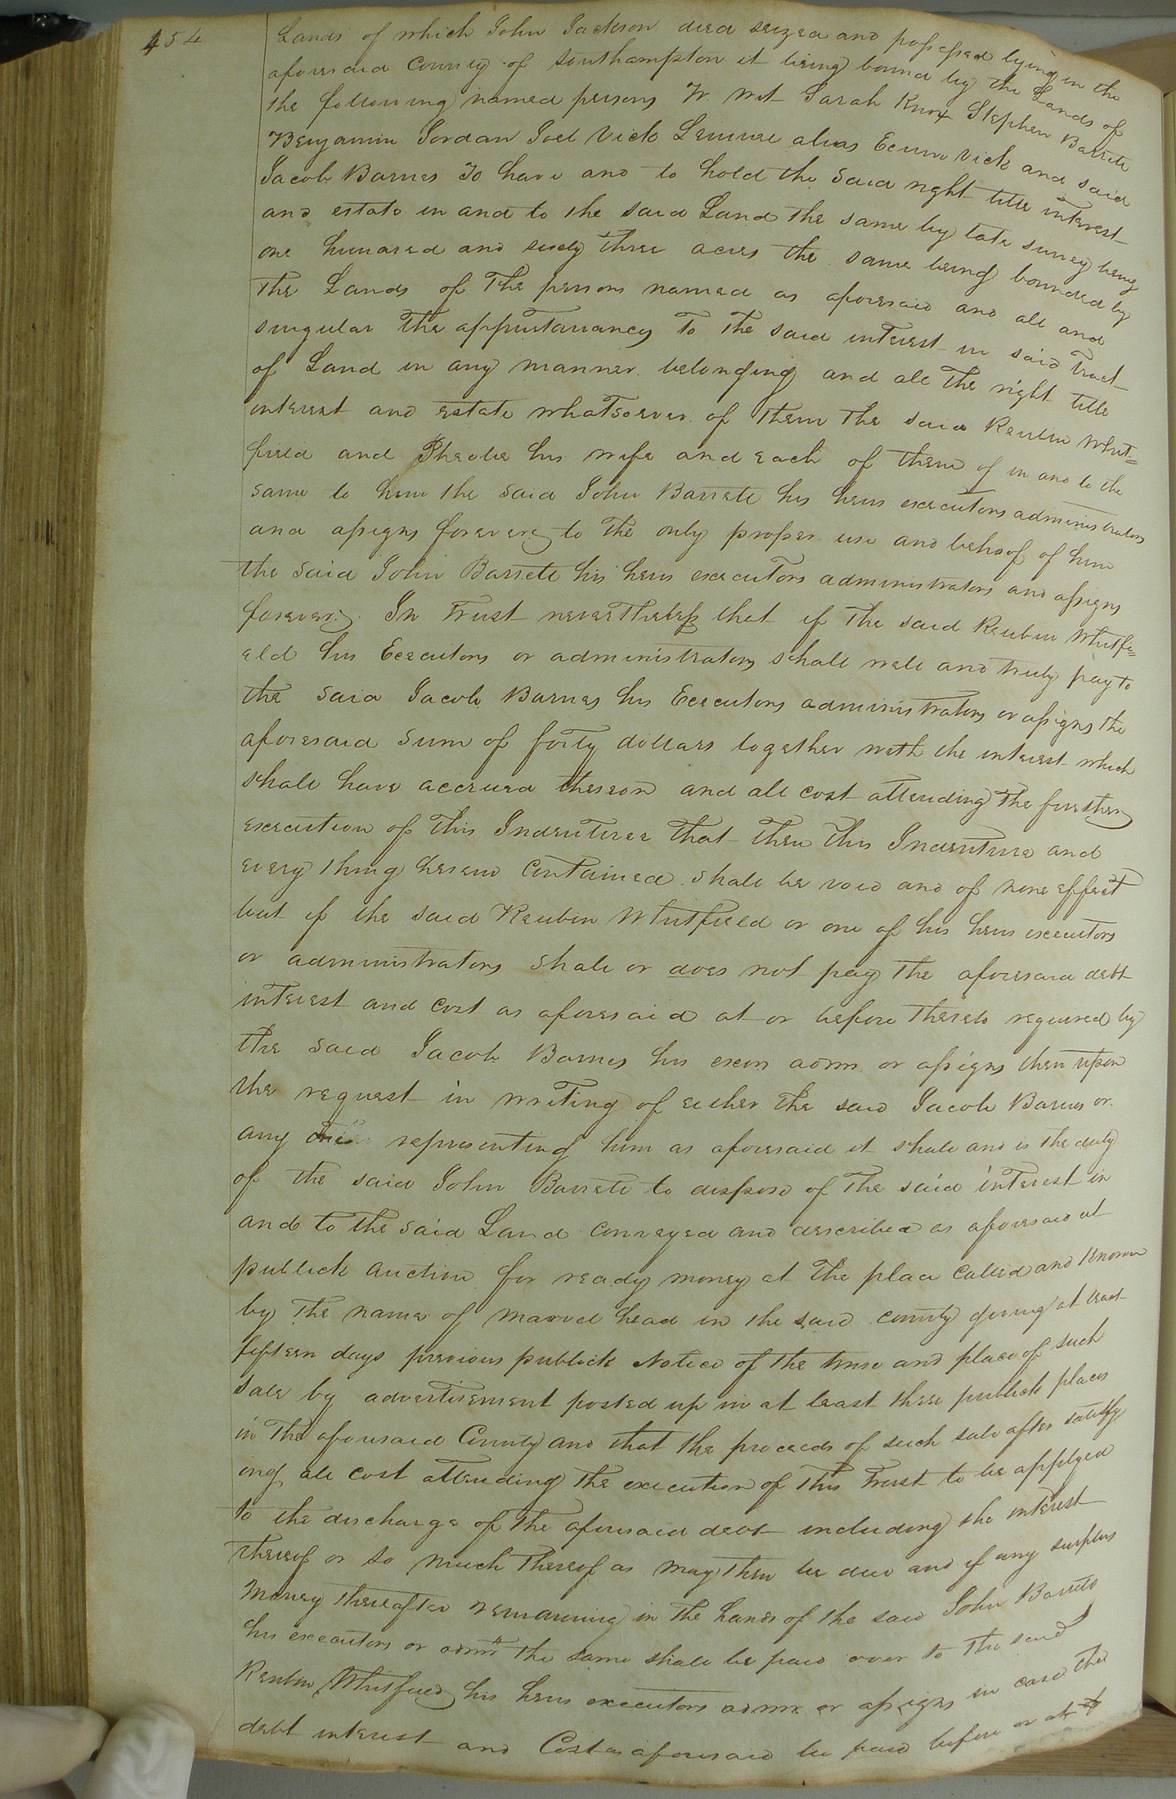 454
Lands of which John Jackson died seized and possessed lying in the
aforesaid County of Southampton it being bound by the Lands of
the following named persons to wit Sarah Knox Stephen Barrett
Benjamin Jordan Joel Vick Lemuel alias Ecum Vick and said
Jacob Barnes To have and to hold the said right title interest
and estate in and to the said Land the same by late survey being
one hundred and sixty three acres the same being bounded by
the Lands of the persons named as aforesaid and all and
singular the appurtanancy to the said interest in said Tract
of Land in any manner belonging and all the right title
interest and estate whatsoever of them the said Reuben Whit=
field and Pheobe his wife and each of them of in and to the
same to him the said John Barrett his heirs executors administrators
and assigns forever to the only proper use and behoof of him
the said John Barrett his heirs executors administrators and assigns
forever. In trust nevertheless that if the said Reuben Whitfi=
eld his Executors or administrators shall well and truly pay to
the said Jacob Barnes his Executors administrators or assigns the
aforesaid sum of forty dollars together with the interest which
shall have accrued thereon and all cost attending the further
execution of this Indenture that then this Indenture and
every thing herein contained shall be void and of none effect
but if the said Reuben Whitfield or one of his heirs executors
or administrators shall or does not pay the aforesaid debt
interest and cost as aforesaid at or before thereto required by
the said Jacob Barnes his exors adms or assigns then upon
the request in writing of either the said Jacob Barnes or
any representing him as aforesaid it shall and is the duty
of the said John Barrett to dispose of the said interest in
and to the said Land conveyed and described as aforesaid at
publick auction for ready money at the place called and known
by the name of head in the said county giving at least
fifteen days previous publick Notice of the time and place of such
sale by advertisement posted up in at least three publick places
in the aforesaid County and that the proceeds of such sale after satisfy
ing all cost attending the execution of this Trust to be applyed
to the discharge of the aforesaid debt including the interest
thereof or so much thereof as may then be due and if any surplus
money thereafter remaining in the hands of the said John Barrett
his executors or admrs the same shall be paid over to the said
Reuben Whitfield his heirs executors adms or assigns in case the
debt interest and Cost as aforesaid be paid before or at